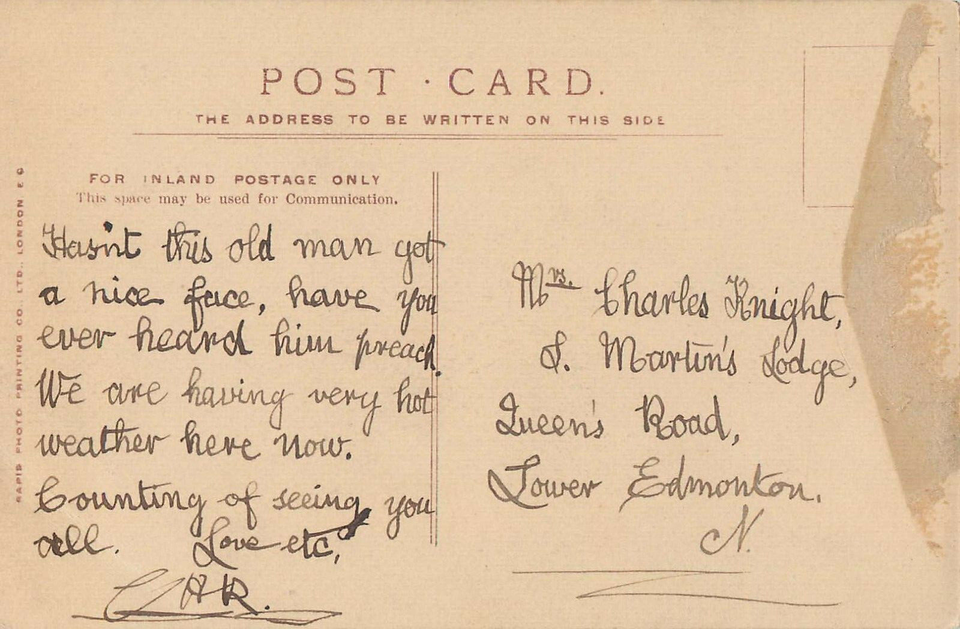 POST · CARD.
THE ADDRESS TO BE WRITTEN ON THIS SIDE
FOR INLAND POSTAGE ONLY
This space may be used for Communication.
RAPID PHOTO PRINTING CO. LTD., LONDON, E C
Hasn't this old man got
a nice face, have you
ever heard him preach.
We are having very hot
weather here now.
Counting of seeing you
all. Love etc,
Mrs. Charles Knight,
S. Martin's Lodge,
Queen's Road,
Lower Edmonton.
N.